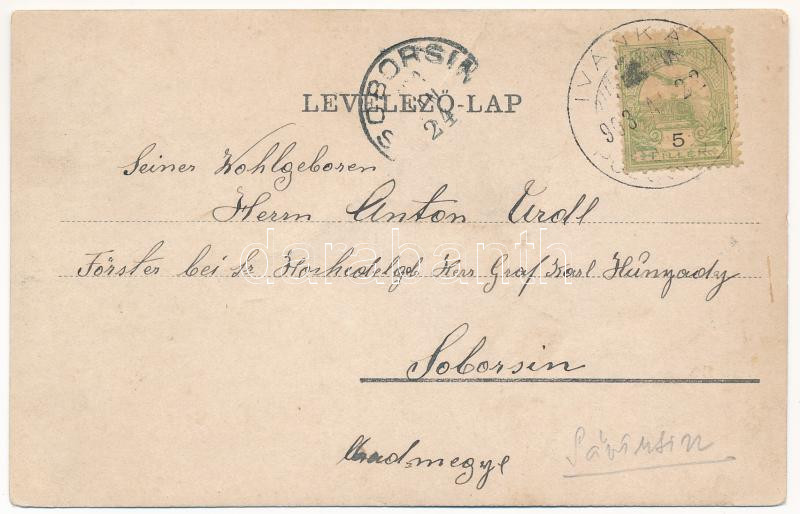 SOBORSIN
24
IVÁNKA
903
5
FILLÉR
LEVELEZŐ-LAP
Seiner Wohlgeboren
Herrn Anton Urdl
Förster bei Sr Hochedelgb Herr Graf Karl Hunyady
Soborsin
Aradmegye
Săvîrsin
darabanth